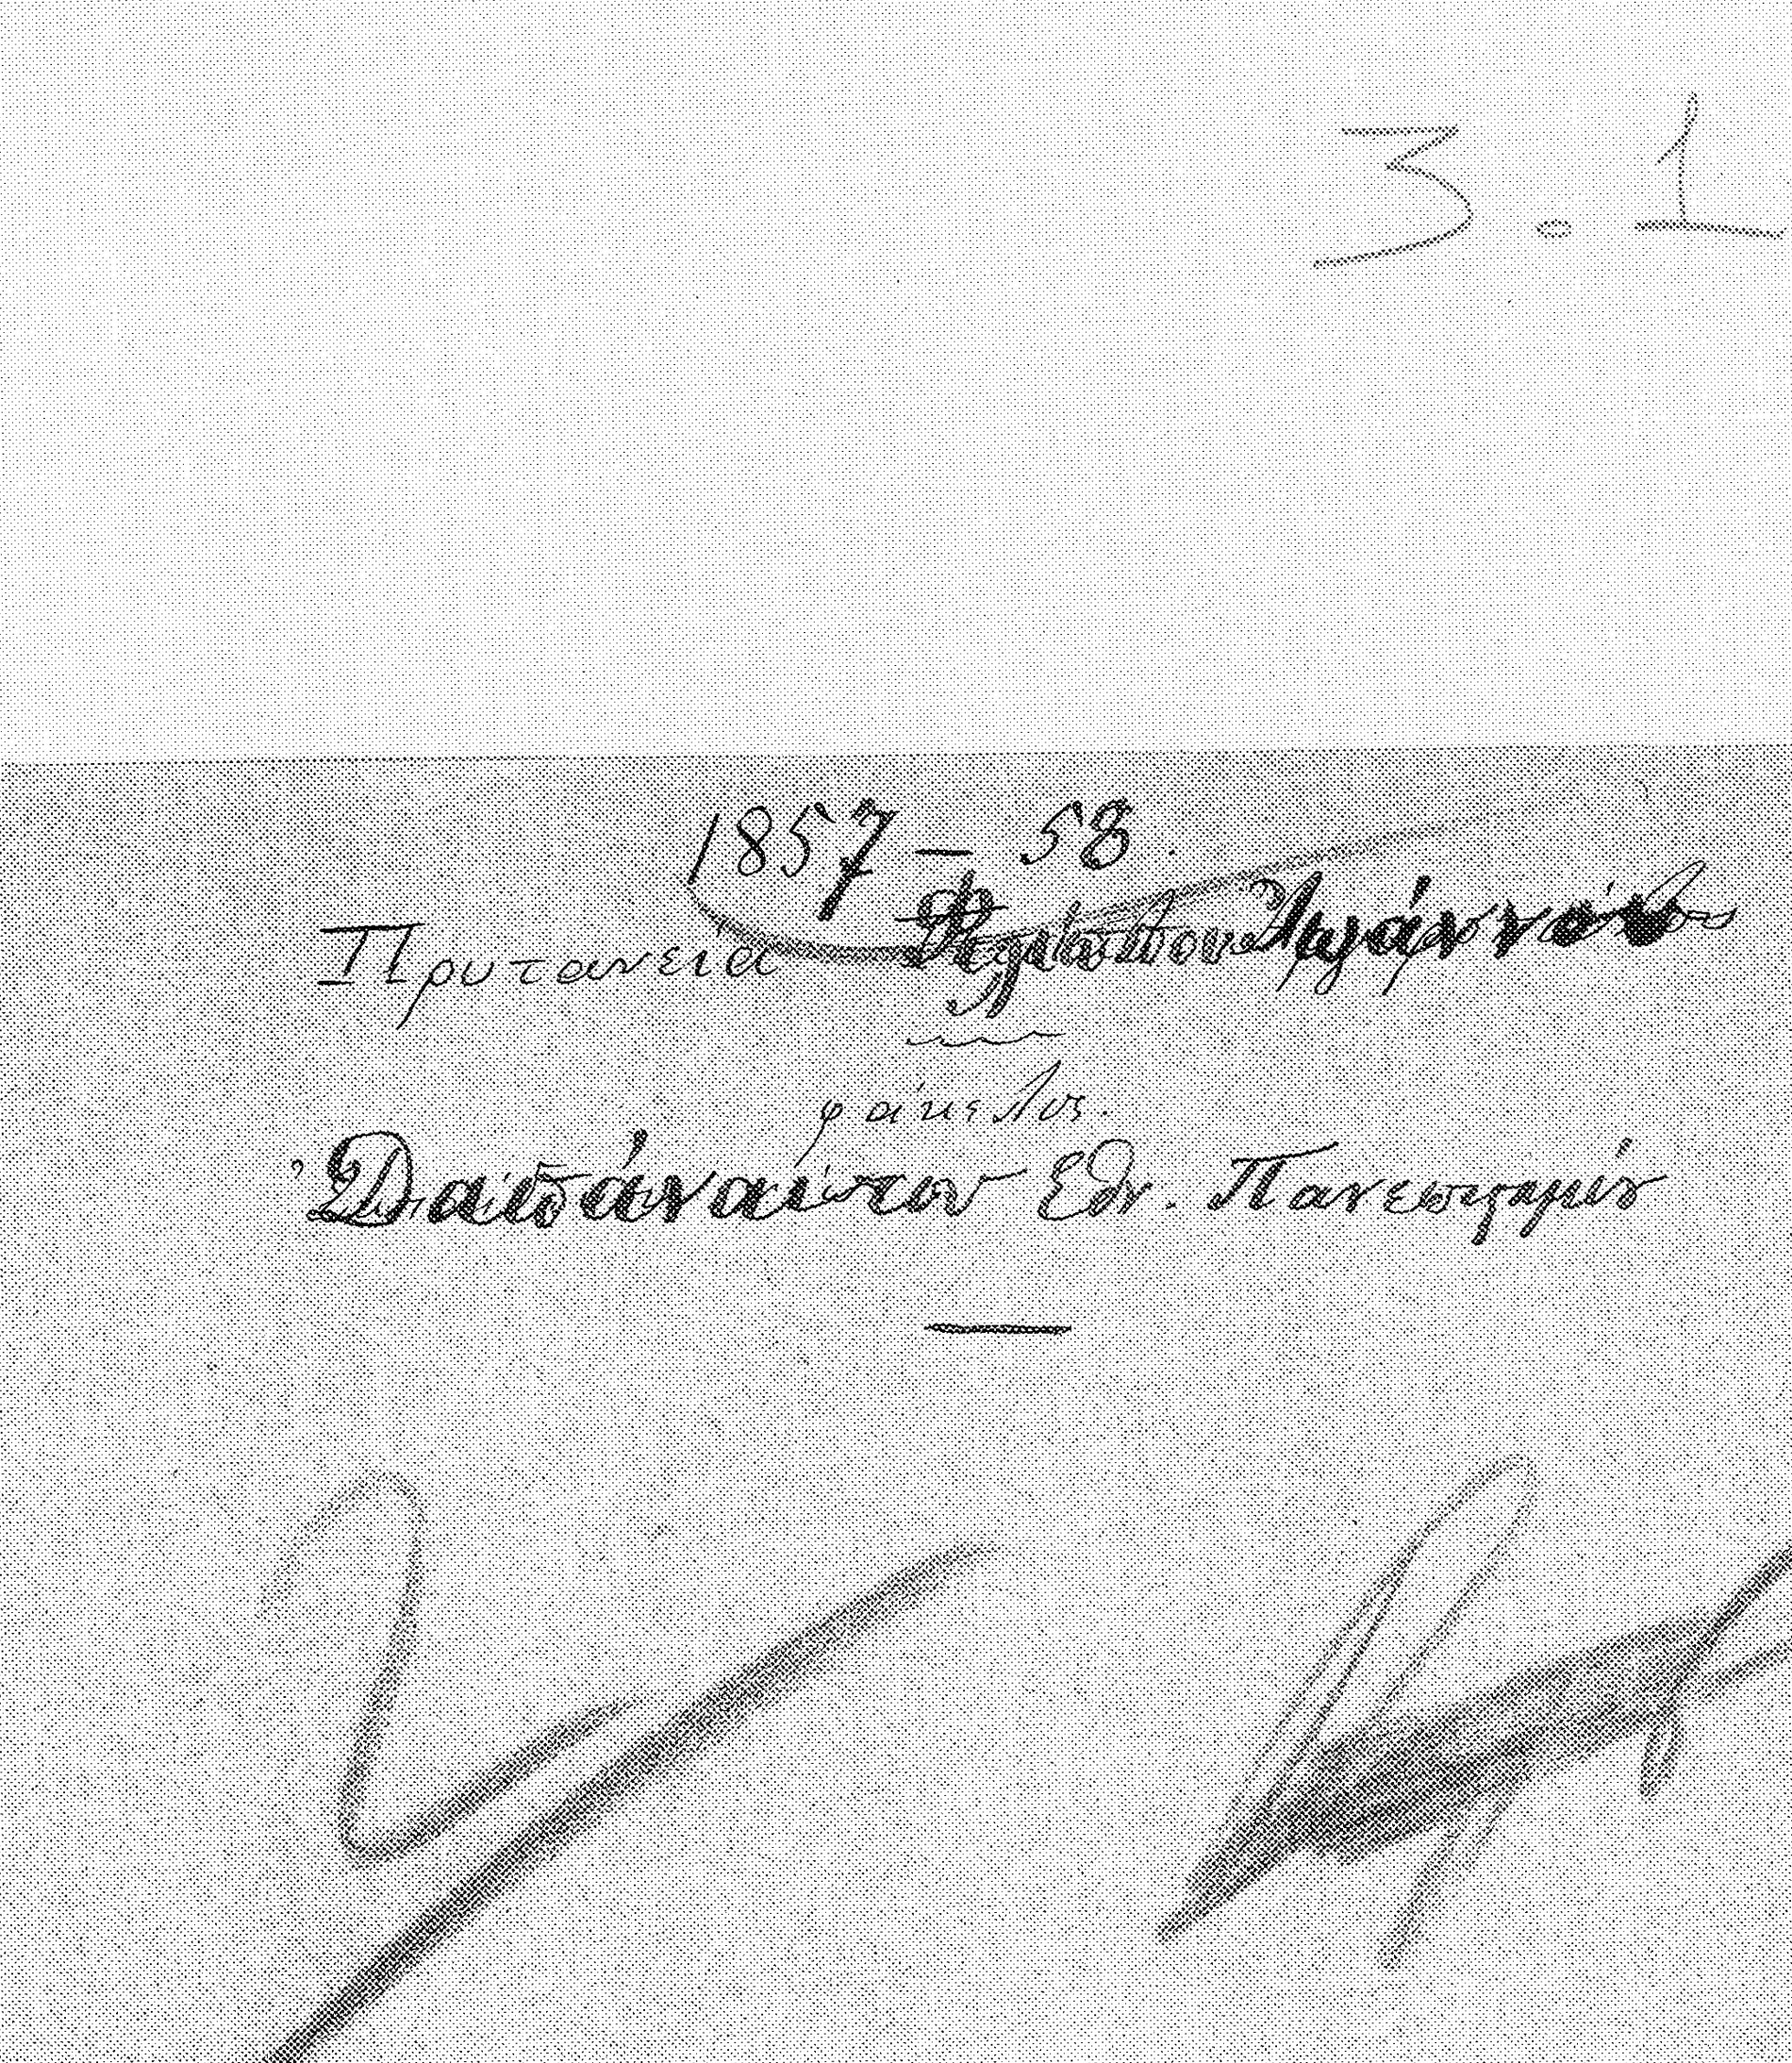 3.1
1857 – 58.
Πρυτανεία Φιλίππου Ἰωάννου
φάκελος.
Δαπάναι του Εθν. Πανεπιστημίου